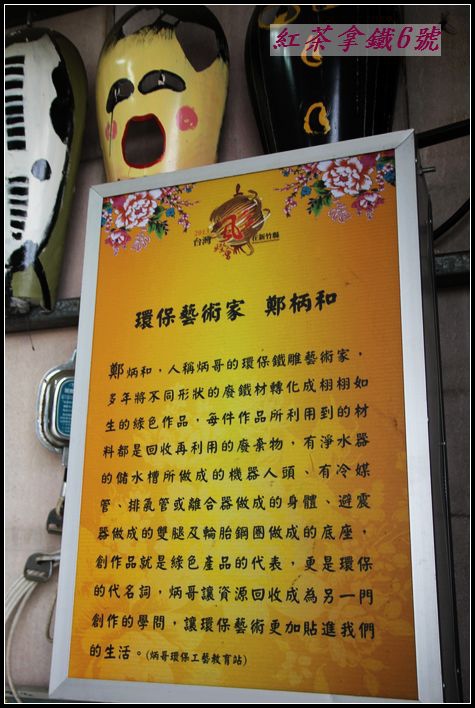 紅茶拿鐵6號
2013
台灣
在新竹縣
環保藝術家 鄭柄和
鄭炳和，人稱炳哥的環保鐵雕藝術家，
多年將不同形狀的廢鐵材轉化成栩栩如
生的綠色作品，每件作品所利用到的材
料都是回收再利用的廢棄物，有淨水器
的儲水槽所做成的機器人頭、有冷媒
管、排氣管或離合器做成的身體、避震
器做成的雙腿及輪胎鋼圈做成的底座，
創作品就是綠色產品的代表，更是環保
的代名詞，炳哥讓資源回收成為另一門
創作的學問，讓環保藝術更加貼進我們
的生活。(炳哥環保工藝教育站)